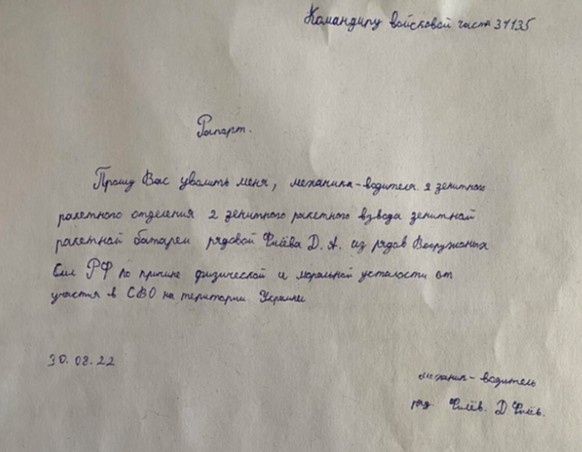 Командиру войсковой части 31135
Рапорт.
Прошу Вас уволить меня, механика-водителя 2 зенитного
ракетного отделения 2 зенитного ракетного взвода зенитной
ракетной батареи рядовой Филёва Д. А. из рядов Вооружоных
Сил РФ по причине физической и моральной усталости от
участия в СВО на територии Украины
30.08.22
механик-водитель
ряд Филёв. Д Филёв.